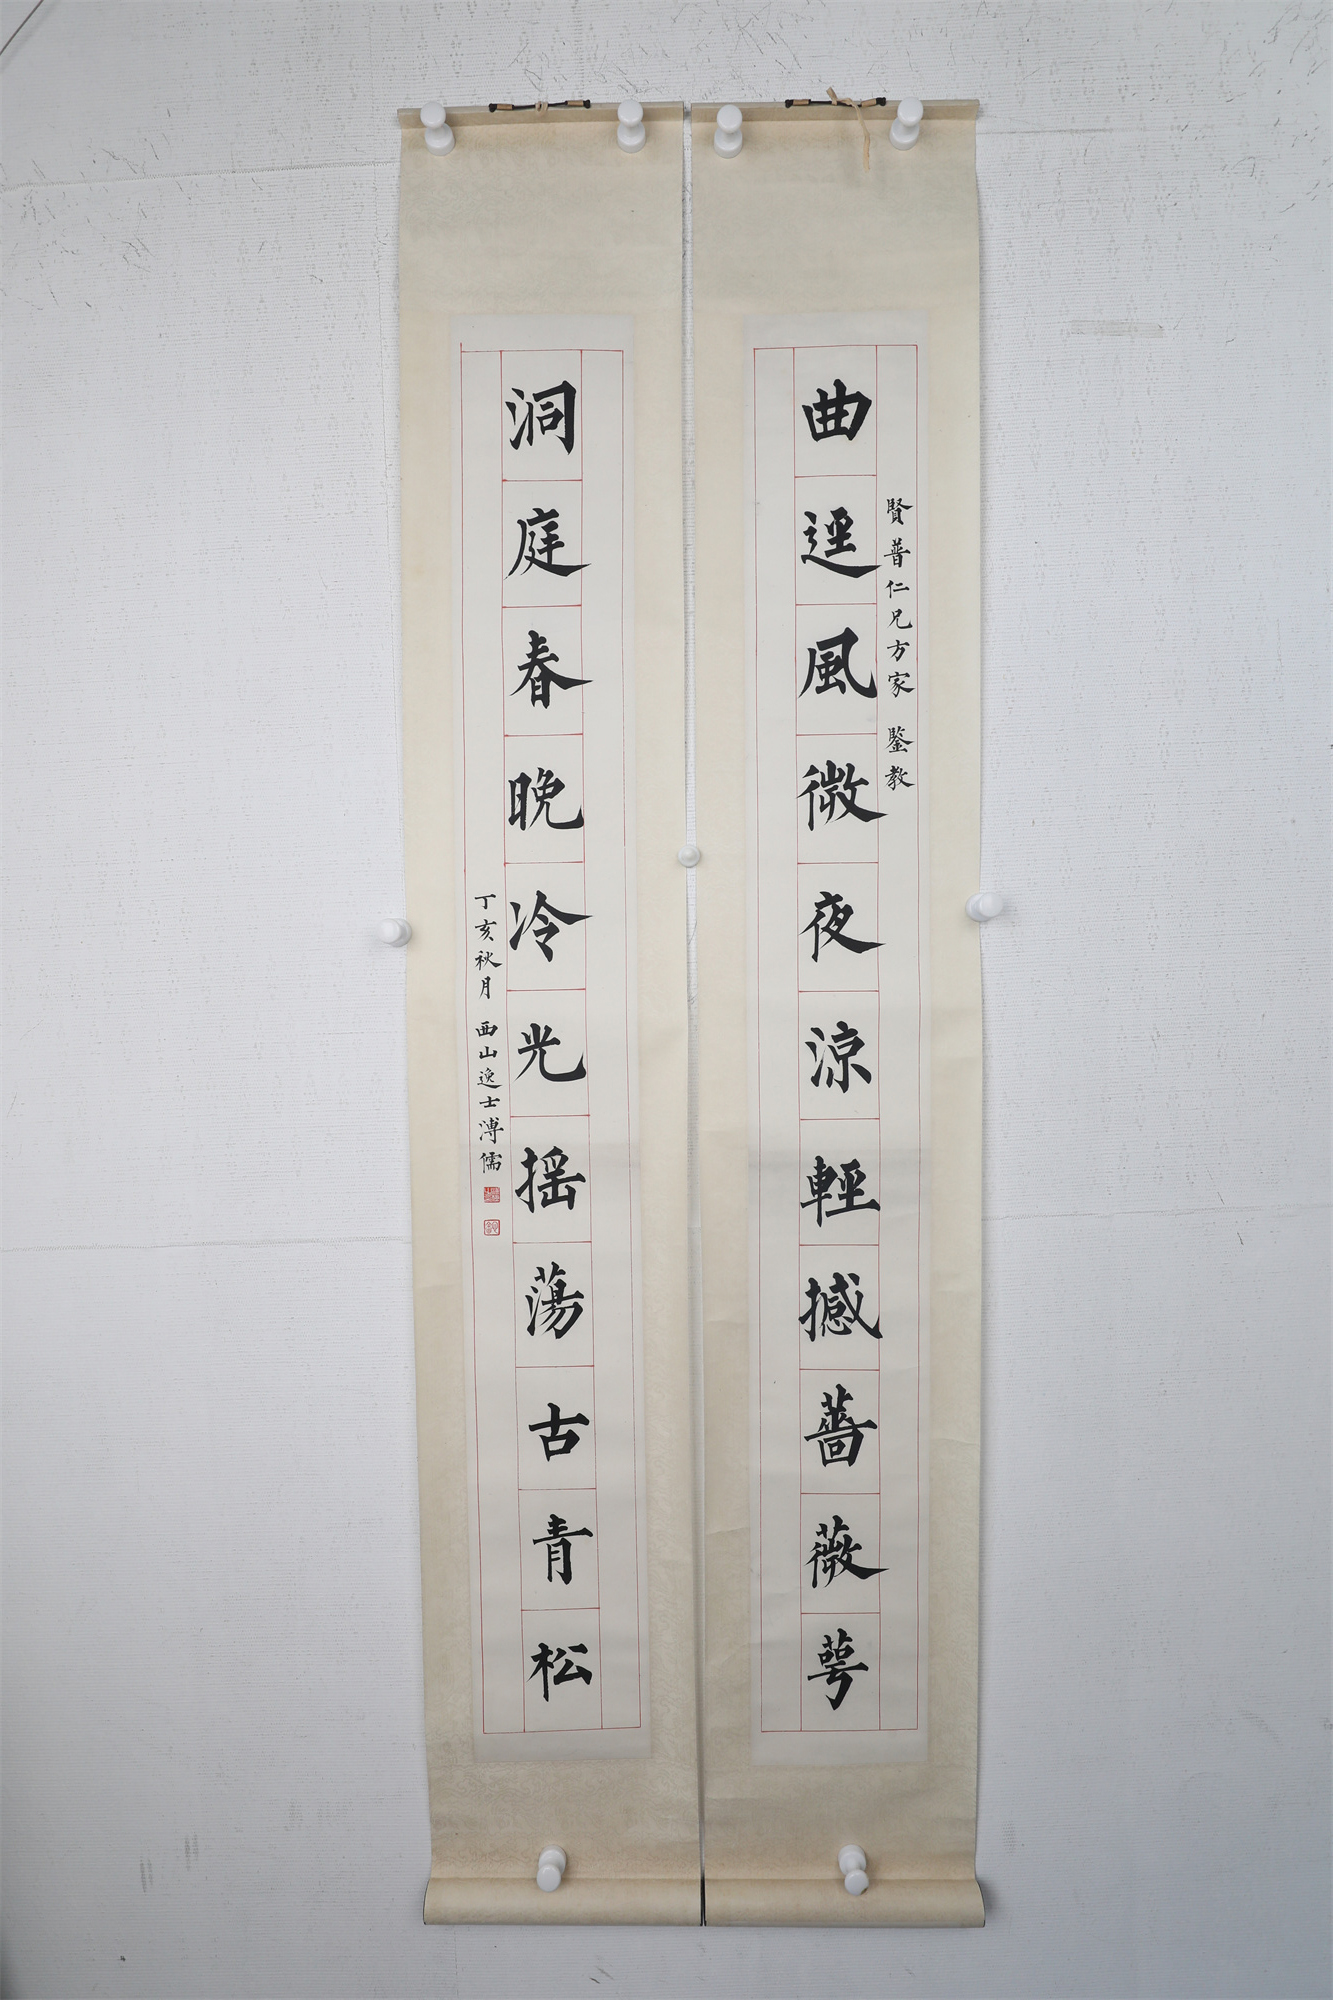 賢普仁兄方家 鑒教
曲逕風微夜涼輕撼薔薇萼
洞庭春晚冷光摇蕩古青松
丁亥秋月 西山逸士溥儒